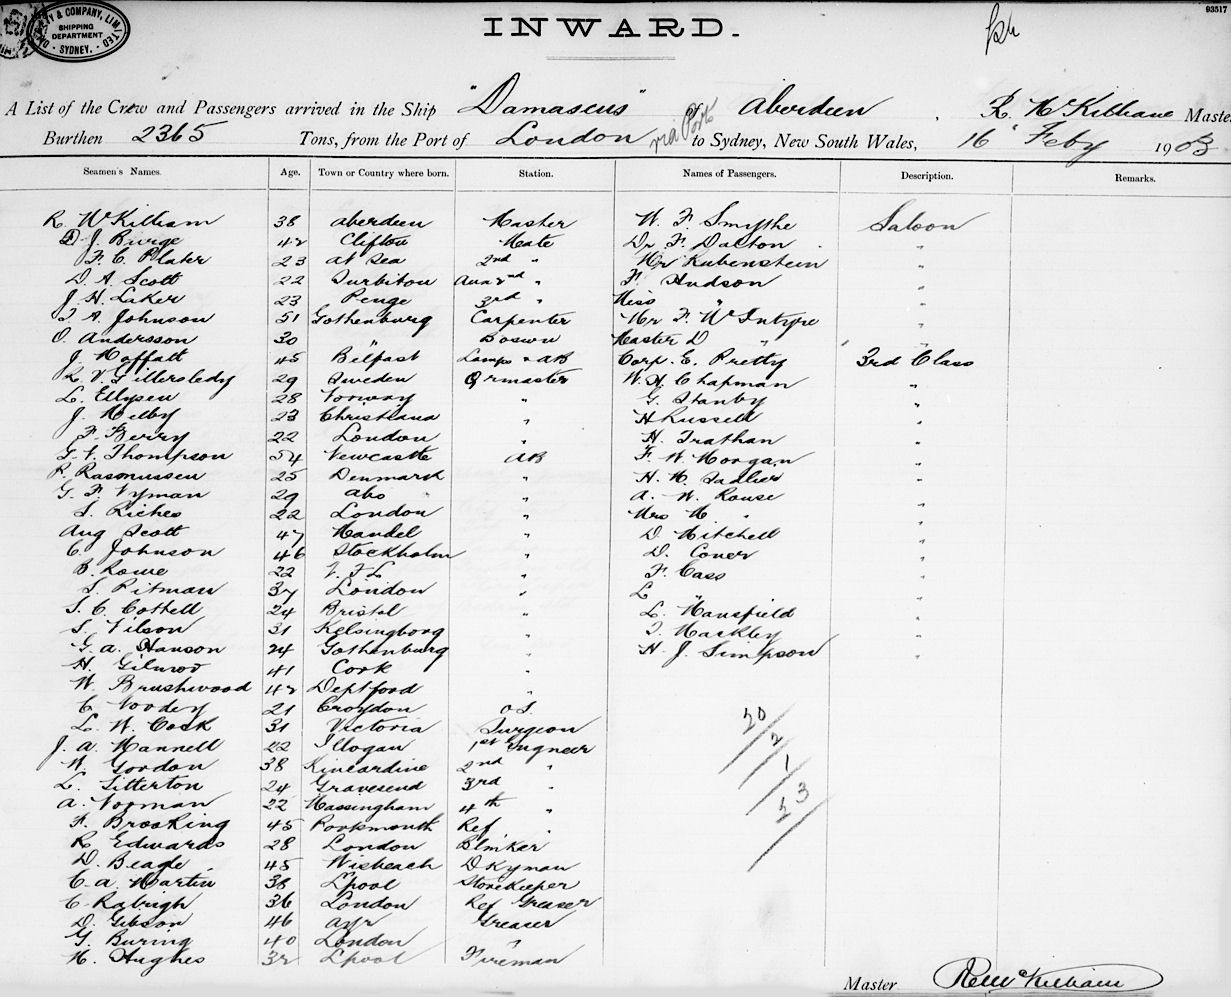 93517
DALGETY & COMPANY, LIMITED
SHIPPING
DEPARTMENT
SYDNEY.
INWARD.
A List of the Crew and Passengers arrived in the Ship "Damascus" of Aberdeen, R. McKilliam Master
Burthen 2365 Tons, from the Port of London via Ports to Sydney, New South Wales, 16" Feby 1903
Seamen's Names. Age. Town or Country where born. Station. Names of Passengers. Description. Remarks.
R. McKilliam 38 Aberdeen Master W. F. Smythe Saloon
D. J. Burge 42 Clifton Mate Dr F. Dalton "
F. C. Plater 23 at Sea 2nd " Mr Rubenstein "
D. A. Scott 22 Surbiton Aux 2nd " F. Hudson "
J. H. Laker 23 Penge 3rd " Miss " "
J. A. Johnson 51 Gothenburg Carpenter Mr F. McIntyre "
O. Andersson 30 " Boswn Master D " "
J. Moffatt 45 Belfast Lamps & AB Corp. E. Pretty 3rd Class
R. V. 29 Sweden Qrmaster W. H. Chapman "
L. Ellysen 28 Norway " G. Stanby "
J. Melby 23 Christiana " H Russell "
F. Berry 22 London " H. Trathan "
G. V. Thompson 54 Newcastle AB F. W. Morgan "
P. Rasmussen 25 Denmark " H. M. Sadlier "
G. F. Nyman 29 Abo " A. W. Rouse "
S. Riches 22 London " Mrs M " "
Aug Scott 47 Mandel " D. Mitchell "
C. Johnson 46 Stockholm " D. Coner "
B. Rowe 22 " F. Cass "
S. Pitman 37 London " L " "
S. C. Cottell 24 Bristol " L. Mansfield "
S. Nilson 31 Helsingborg " J. Mackley "
G. A. Hanson 24 Gothenburg " H. J. Simpson "
H. Gilmor 41 Cork "
W. Brushwood 42 Deptford "
C. Voodey 21 Croydon O.S.
L. W. Cock 31 Victoria Surgeon
J. A. Mannell 22 Illogan 1st Engineer
W. Gordon 38 Kincardine 2nd "
L. Titterton 24 Gravesend 3rd "
A. Norman 22 Massingham 4th "
F. Brooking 45 Portsmouth Ref "
R. Edwards 28 London Blmker
D. Beagle 45 Wisbeach Dkyman
C. A. Martin 38 Lpool Storekeeper
C. Raleigh 36 London Ref Greaser
D. Gibson 46 Ayr Greaser
G. Buring 40 London "
M. Hughes 32 Lpool Fireman
20
2
1
23
Master R McKilliam